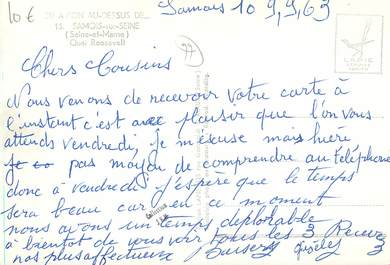 10€
DU A-BON AU-DESSUS DE...
13. SAMOIS-sur-SEINE
(Seine-et-Marne)
Quai Roosevelt
77
Samois 10 9,9,63
LAPIE
Chers Cousins
Nous venons de recevoir votre carte à
l'instant c'est avec plaisir que l'on vous
attends vendredi, Je m'excuse mais hier
pas moyen de comprendre au téléphone
donc à vendredi j'espère que le temps
sera beau car en ce moment
nous avons un temps déplorable
à bientot de vous voir tous les 3 Recevez
nos plus affectueux Baisers